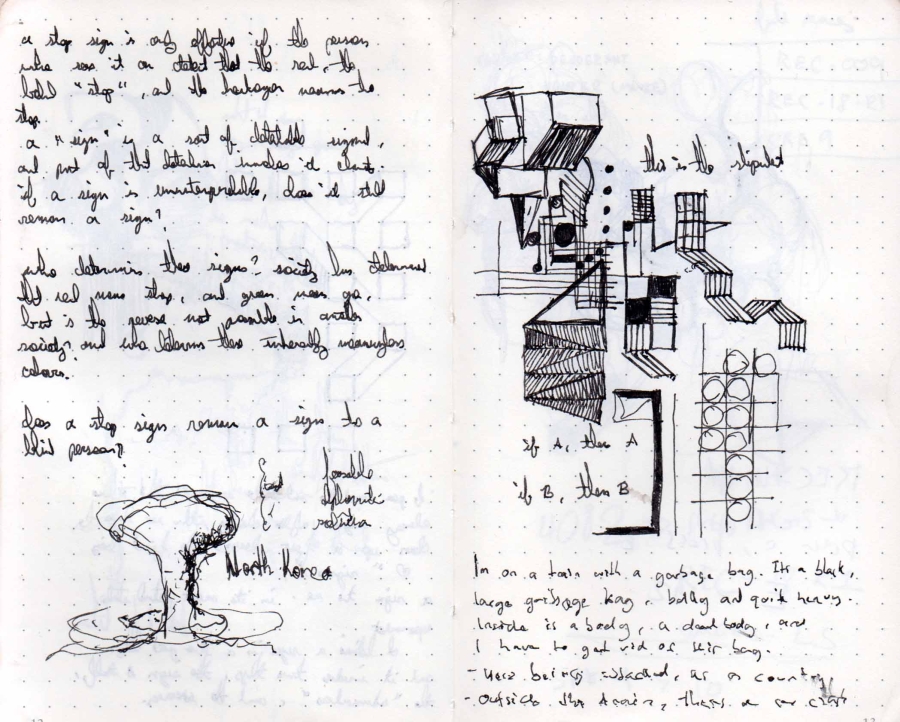 a stop sign is only effective if the person
who sees it can detect that the red, the
label "stop", and the hexagon means to
stop.
a "sign" is a sort of detectable signal,
and part of that detection involves it
if a sign is uninterpretable, does it still
remain a sign?
who determines these signs? society has determined
that red means stop, and green means go,
but is the reverse not possible in another
society? and who determines these inherently meaningless
colours.
does a stop sign remain a sign to a
blind person?
possible
diplomatic
North Korea
this is the
if A, then A
if B, then B
I'm on a train with a garbage bag. It's a black,
large garbage bag, bulky and quite heavy.
Inside is a body, a dead body, and
I have to get rid of this bag.
- were being attacked, as a country
- outside the train, there's a car crash